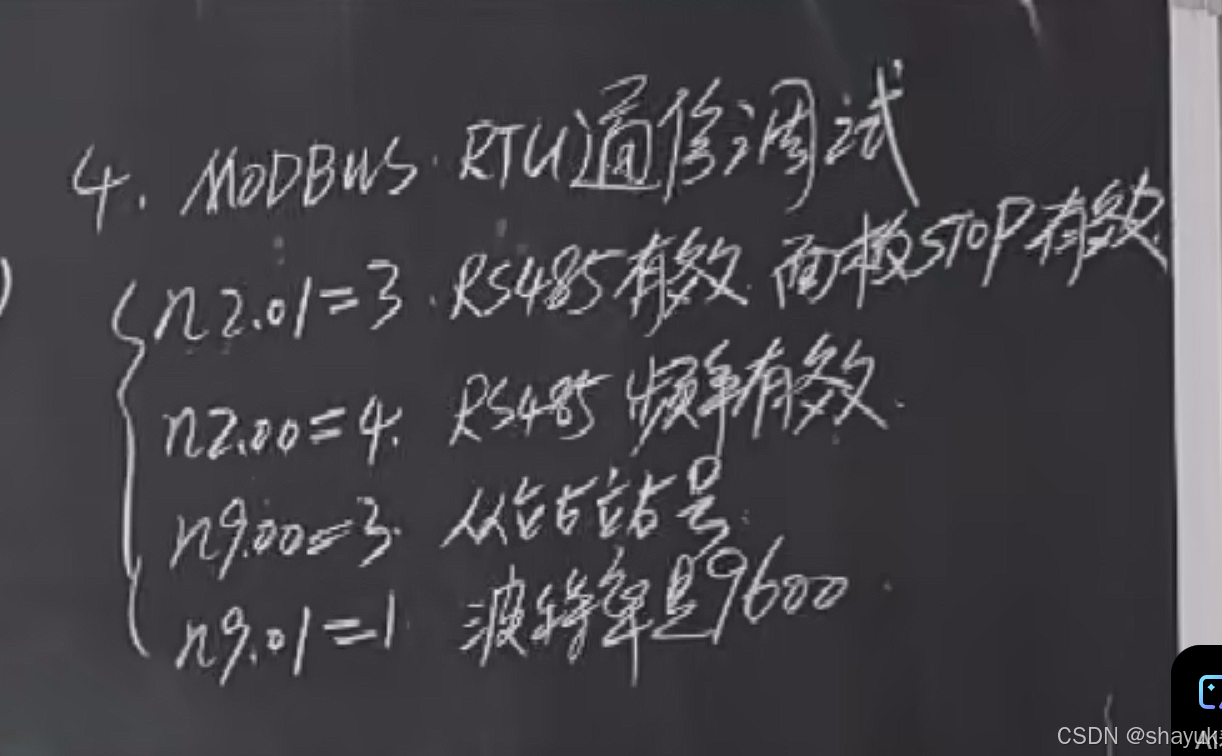 4. MODBUS RTU通信调试
n2.01=3. RS485有效. 面板STOP有效.
n2.00=4. RS485 频率有效.
n9.00=3. 从站站号.
n9.01=1 波特率是9600
CSDN @shayuk